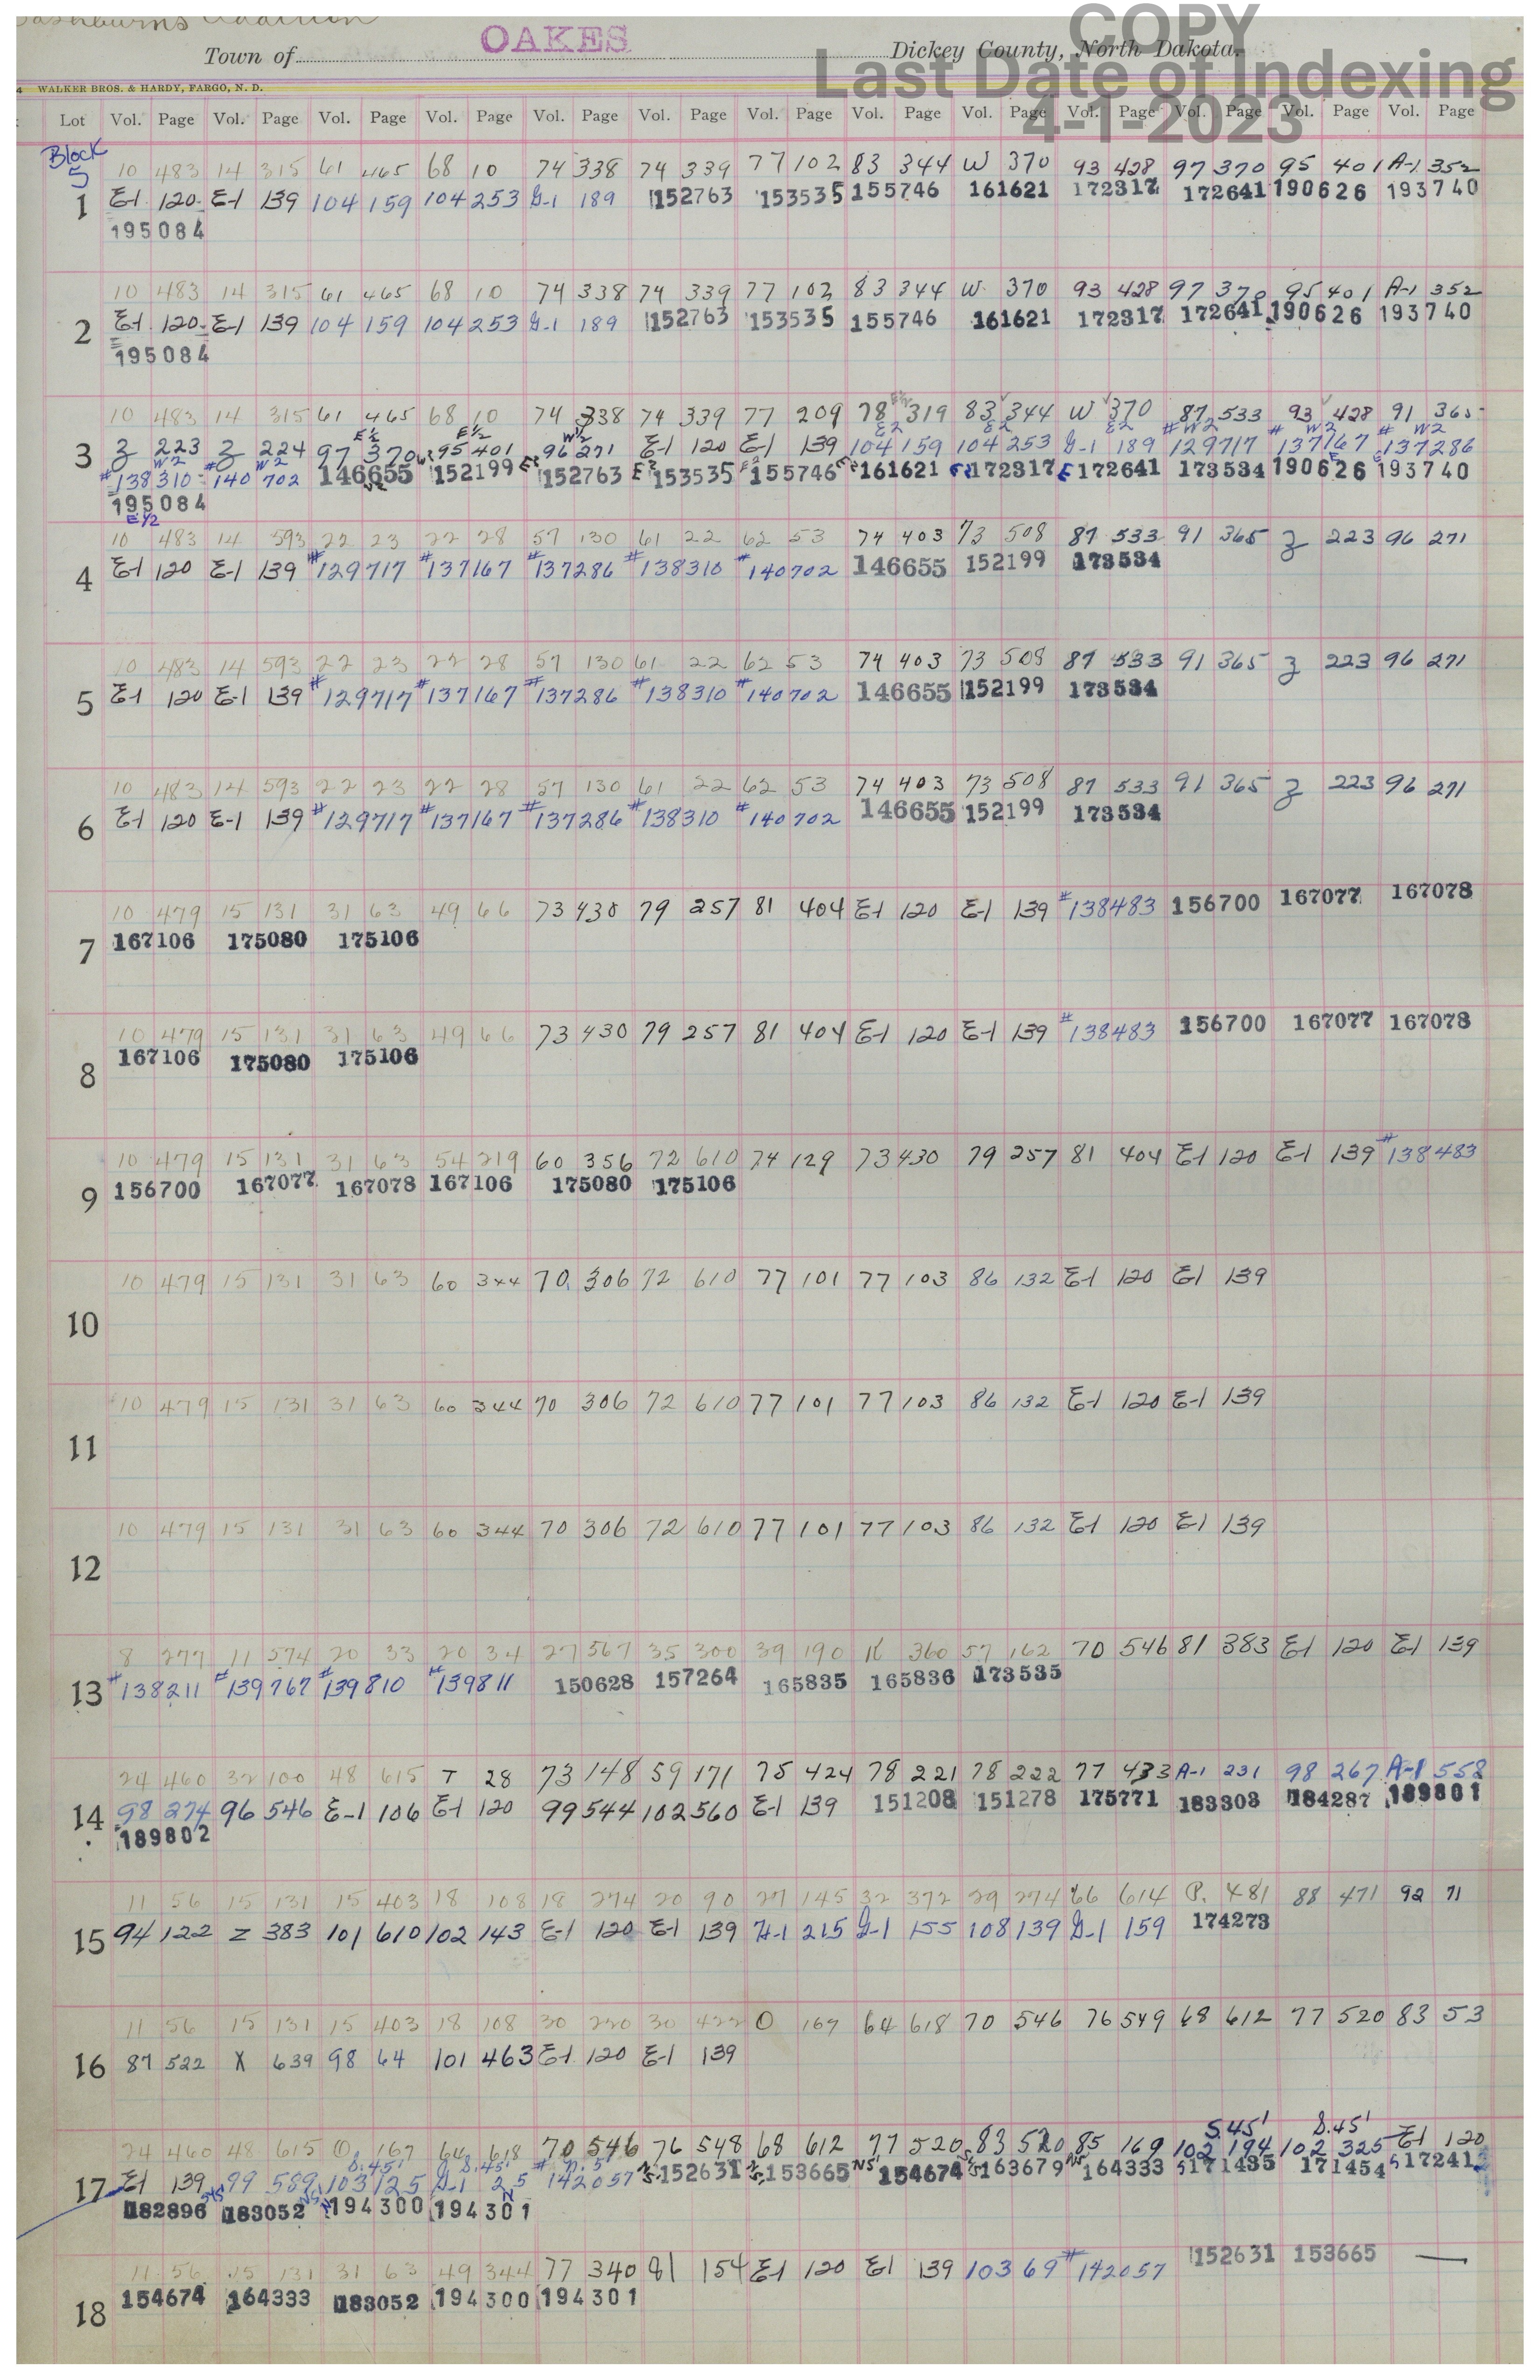 Washburns Addition
Town of OAKES Dickey County, North Dakota.
COPY
Last Date of Indexing
4-1-2023
WALKER BROS. & HARDY, FARGO, N. D.
Lot Vol. Page Vol. Page Vol. Page Vol. Page Vol. Page Vol. Page Vol. Page Vol. Page Vol. Page Vol. Page Vol. Page Vol. Page Vol. Page
Block 5
1 10 483 14 315 61 465 68 10 74 338 74 339 77 102 83 344 W 370 93 428 97 370 95 401 A-1 352
E-1 120 E-1 139 104 159 104 253 G-1 189 152763 153535 155746 161621 172317 172641 190626 193740
195084
2 10 483 14 315 61 465 68 10 74 338 74 339 77 102 83 344 W 370 93 428 97 370 95 401 A-1 352
E-1 120 E-1 139 104 159 104 253 G-1 189 152763 153535 155746 161621 172317 172641 190626 193740
195084
3 10 483 14 315 61 465 68 10 74 338 74 339 77 209 78 319 83 344 W 370 87 533 93 428 91 365
E 1/2 E 1/2 W 1/2 E2 E2 E2 # W2 # W2 # W2
Z 223 Z 224 97 370 95 401 96 271 E-1 120 E-1 139 104 159 104 253 G-1 189 129717 137167 137286
W2 W2
#138310 #140702 146655 152199 152763 153535 155746 161621 172317 172641 173534 190626 193740
195084
E 1/2
4 10 483 14 593 22 23 22 28 57 130 61 22 62 53 74 403 73 508 87 533 91 365 Z 223 96 271
E-1 120 E-1 139 #129717 #137167 #137286 #138310 #140702 146655 152199 173534
5 10 483 14 593 22 23 22 28 57 130 61 22 62 53 74 403 73 508 87 533 91 365 Z 223 96 271
E-1 120 E-1 139 #129717 #137167 #137286 #138310 #140702 146655 152199 173534
6 10 483 14 593 22 23 22 28 57 130 61 22 62 53 74 403 73 508 87 533 91 365 Z 223 96 271
E-1 120 E-1 139 #129717 #137167 #137286 #138310 #140702 146655 152199 173534
7 10 479 15 131 31 63 49 66 73 430 79 257 81 404 E-1 120 E-1 139 #138483 156700 167077 167078
167106 175080 175106
8 10 479 15 131 31 63 49 66 73 430 79 257 81 404 E-1 120 E-1 139 #138483 156700 167077 167078
167106 175080 175106
9 10 479 15 131 31 63 54 219 60 356 72 610 74 129 73 430 79 257 81 404 E-1 120 E-1 139 #138483
156700 167077 167078 167106 175080 175106
10 10 479 15 131 31 63 60 344 70 306 72 610 77 101 77 103 86 132 E-1 120 E-1 139
11 10 479 15 131 31 63 60 344 70 306 72 610 77 101 77 103 86 132 E-1 120 E-1 139
12 10 479 15 131 31 63 60 344 70 306 72 610 77 101 77 103 86 132 E-1 120 E-1 139
13 8 277 11 574 20 33 20 34 27 567 35 300 39 190 K 360 57 162 70 546 81 383 E-1 120 E-1 139
#138211 #139767 #139810 #139811 150628 157264 165835 165836 173535
14 24 460 32 100 48 615 T 28 73 148 59 171 75 424 78 221 78 222 77 433 A-1 231 98 267 A-1 558
98 274 96 546 E-1 106 E-1 120 99 544 102 560 E-1 139 151208 151278 175771 183303 184287 189801
189802
15 11 56 15 131 15 403 18 108 18 274 20 90 27 145 32 372 29 274 66 614 P. 481 88 471 92 71
94 122 Z 383 101 610 102 143 E-1 120 E-1 139 H-1 215 G-1 155 108 139 G-1 159 174273
16 11 56 15 131 15 403 18 108 30 220 30 422 O 167 64 618 70 546 76 549 68 612 77 520 83 53
87 522 X 639 98 64 101 463 E-1 120 E-1 139
S.45' S.45'
17 24 460 48 615 O 167 64 618 70 546 76 548 68 612 77 520 83 520 85 169 102 194 102 325 E-1 120
S.45' S.45' # N.5'
E-1 139 99 589 103 125 G-1 25 142057 152631 153665 154674 163679 164333 171435 171454 172412
182896 183052 194300 194301
18 11 56 15 131 31 63 49 344 77 340 81 154 E-1 120 E-1 139 103 69 #142057 152631 153665 —
154674 164333 183052 194300 194301